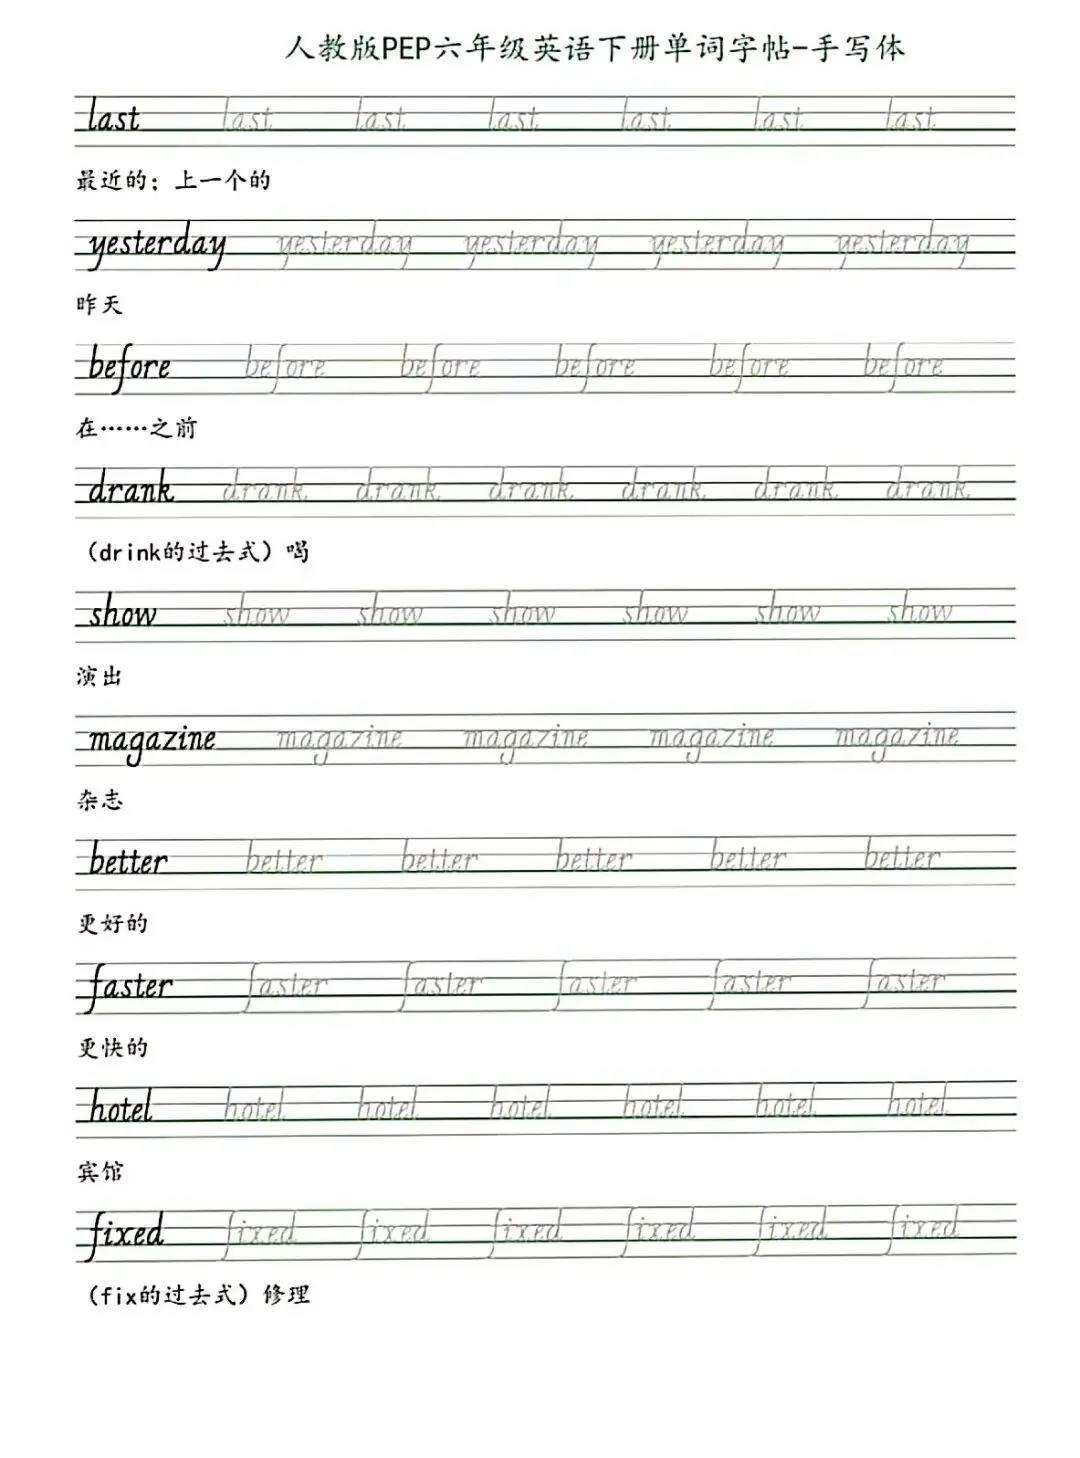 人教版PEP六年级英语下册单词字帖-手写体
last last last last last last last
最近的；上一个的
yesterday yesterday yesterday yesterday yesterday
昨天
before before before before before before
在……之前
drank drank drank drank drank drank drank
（drink的过去式）喝
show show show show show show show
演出
magazine magazine magazine magazine magazine
杂志
better better better better better better
更好的
faster faster faster faster faster faster
更快的
hotel hotel hotel hotel hotel hotel hotel
宾馆
fixed fixed fixed fixed fixed fixed fixed
（fix的过去式）修理